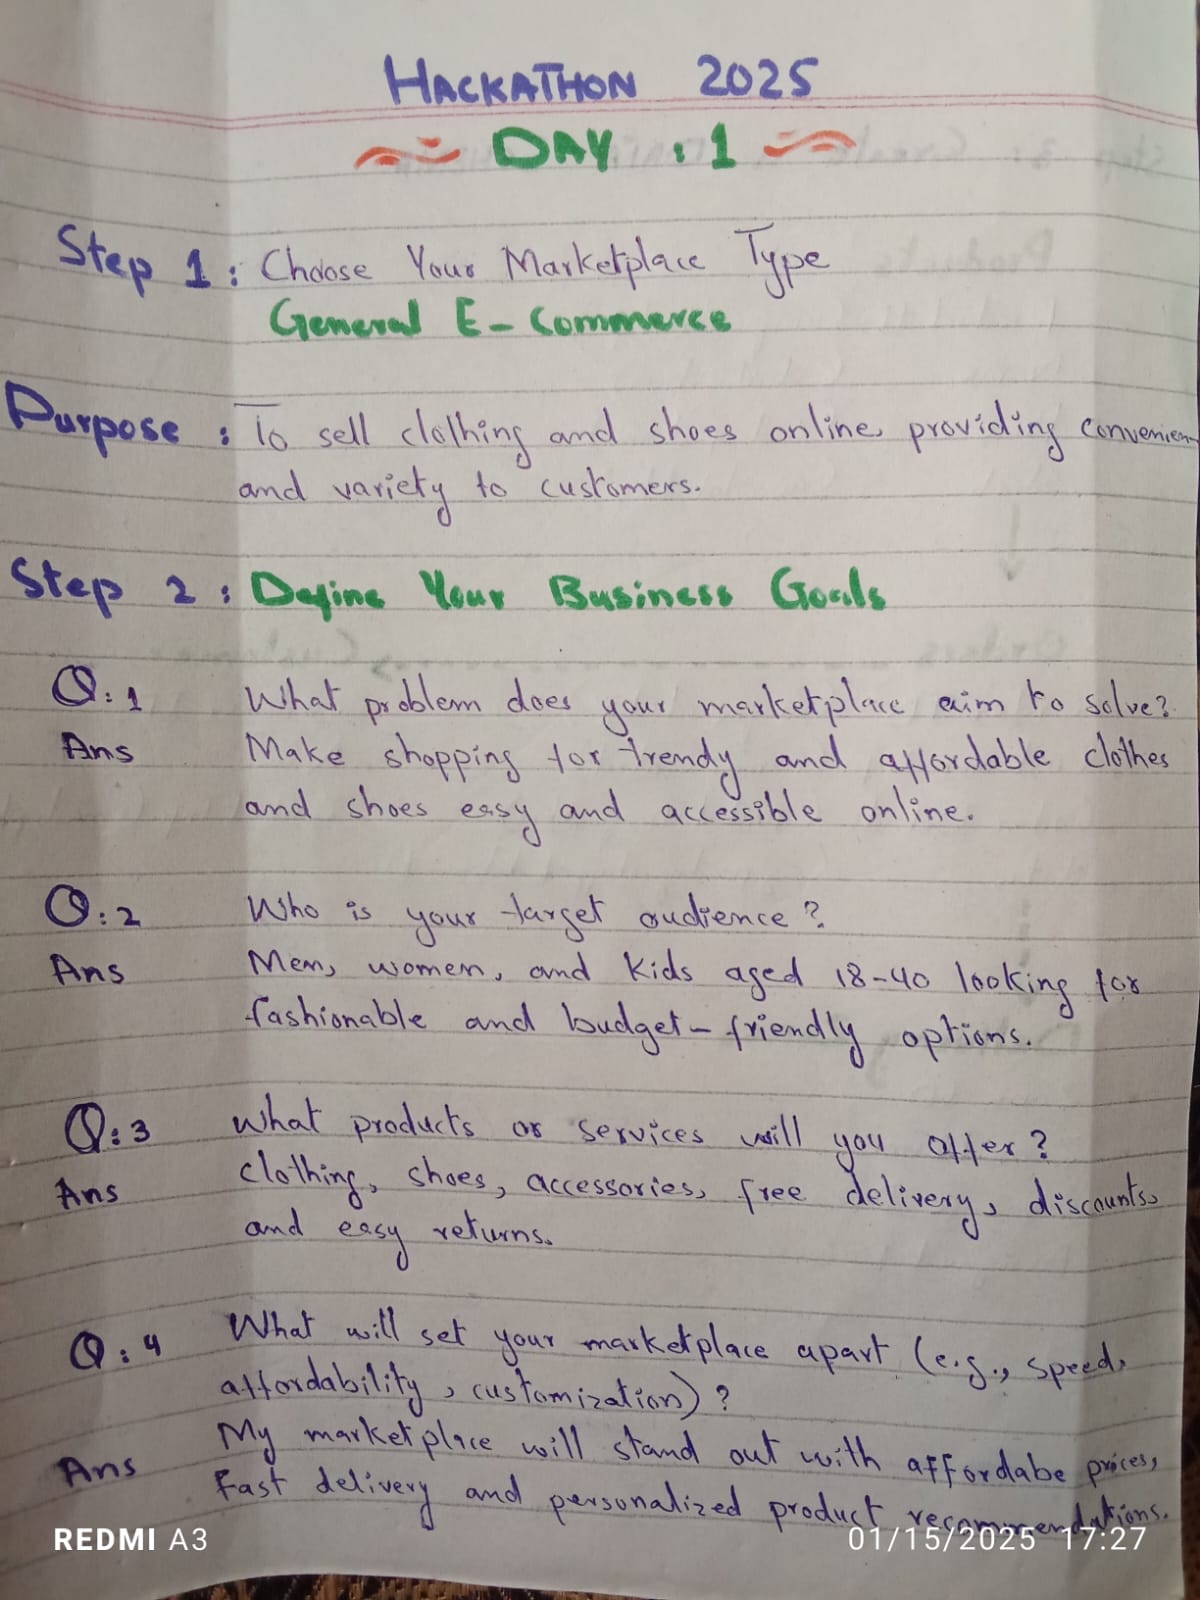 HACKATHON 2025
DAY : 1
Step 1 : Choose Your Marketplace Type
General E-Commerce
Purpose : To sell clothing and shoes online, providing
and variety to customers.
Step 2 : Define Your Business Goals
Q:1 What problem does your marketplace aim to solve?
Ans Make shopping for trendy and affordable clothes
and shoes easy and accessible online.
Q:2 Who is your target audience?
Ans Men, women, and kids aged 18-40 looking for
fashionable and budget-friendly options.
Q:3 What products or services will you offer?
Ans clothing, shoes, accessories, free delivery, discounts,
and easy returns.
Q:4 What will set your marketplace apart (e.g., speed,
affordability, customization)?
Ans My marketplace will stand out with affordabe prices,
fast delivery and personalized product recommendations.
REDMI A3
01/15/2025 17:27